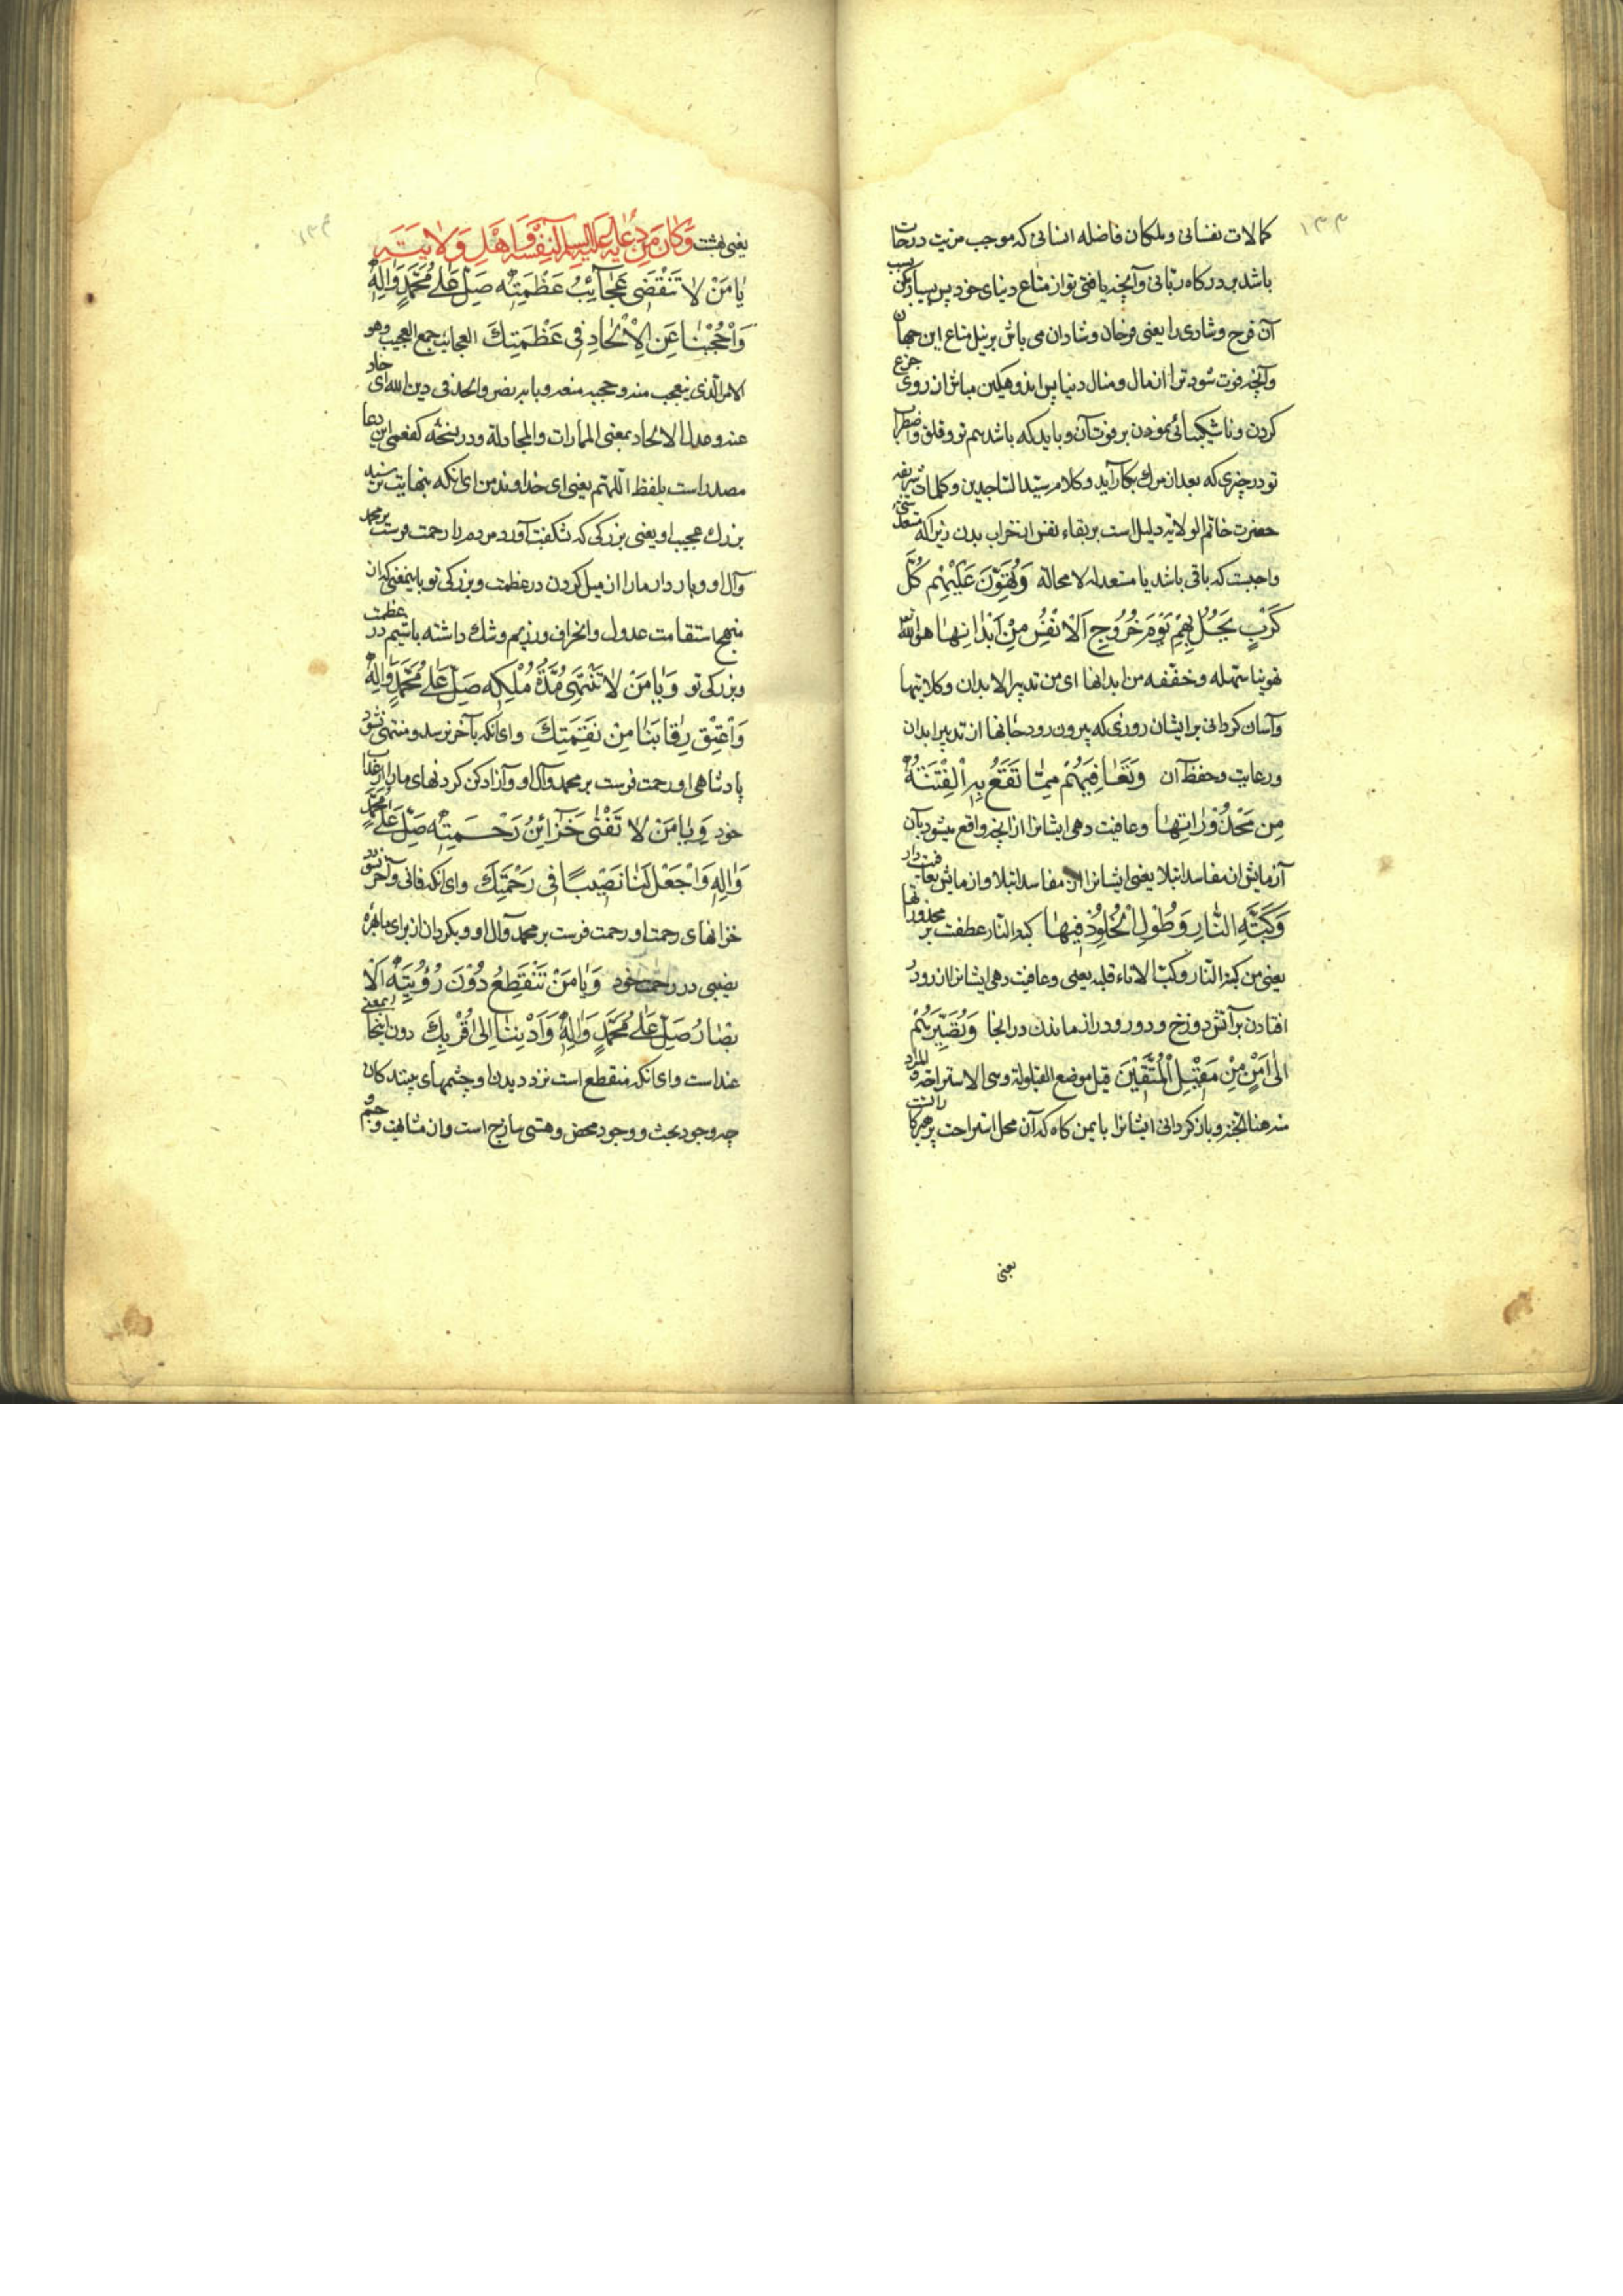 ١٣٣
کمالات نفسانی و ملکات فاضله انسانی که موجب مزیت درجات
باشد بدرکاه ربانی و آنچه یافتی تو از متاع دنیای خود پس بسیار مکن بسبب
آن فرح و شادی را یعنی فرحان و شادان می باش بر نیل متاع این جهان
و آنچه فوت شود ترا از مال و منال دنیا پس اندوهکین مباش از روی جزع
کردن و ناشیکیبائی نمودن بر فوت آن و باید که باشد هم تو و قلق و اضطراب
تو در چیزی که بعد از مرک بکار آید و کلام سید الساجدین و کلمات شریفه
حضرت خاتم الولایة دلیل است بر بقاء نفس از خراب بدن زیرا که مستعد شیء
واجبست که باقی باشد با مستعد له لا محاله وَتُهَوِّنَ عَلَيْهِمْ كُلَّ
كَرْبٍ يَحُلُّ بِهِمْ يَوْمَ خُرُوجِ الْأَنْفُسِ مِنْ أَبْدَانِهَا هون الله
تهوینا سهله و خففه من ابدانها ای من تدبیر الابدان و کلایتها
و آسان کردانی بر ایشان روزی که بیرون رود جانها از تدبیر ابدان
و رعایت و حفظ آن وَتُعَافِيَهُمْ مِمَّا تَقَعُ بِهِ الْفِتْنَةُ
مِن مَحْذُورَاتِهَا و عافیت دهی ایشانرا از آنچه واقع میشود بآن
آزمایش از مفاسد ابتلا یعنی ایشانرا از مفاسد ابتلا و از مایش بعافیت دار
وَكَبَّةِ النَّارِ وَطُولِ الْخُلُودِ فِيهَا کبة النار عطفست بر محذوراتها
یعنی من کبة النار و کبّ الاناء قلبه یعنی و عافیت دهی ایشانرا از رو در
افتادن بر آتش دوزخ و دور و دراز ماندن در انجا وَتُصَيِّرَهُمْ
إِلَى أَمْنٍ مِنْ مَقِيلِ الْمُتَّقِينَ قیل موضع القیلولة و هی الاستراحة و المراد
منه هنا الجنة و باز کردانی ایشانرا بایمن کاه که آن محل استراحت پرهیزکارانست
یعنی
١٣٤
یعنی بهشت وَكَانَ مِنْ دُعَائِهِ عَلَيْهِ السَّلَامُ لِنَفْسِهِ وَأَهْلِ وَلَايَتِهِ
يَا مَنْ لَا تَنْقَضِي عَجَائِبُ عَظَمَتِهِ صَلِّ عَلَى مُحَمَّدٍ وَآلِهِ
وَاحْجُبْنَا عَنِ الْإِلْحَادِ فِي عَظَمَتِكَ العجایب جمع العجیب و هو
الامر الذی یتعجب منه و حجبه منعه و بابه نصر و الحد فی دین الله ای حاد
عنه و عدل الالحاد بمعنی الممارات و المجادلة و در نسخه کفعمی این دعا
مصدر است بلفظ اللهم یعنی ای خداوند من ای انکه بنهایت نرسید
بزرك عجیب او یعنی بزرکی که شکفت آورد مردم را رحمت فرست بر محمد
و آل او و باز دار ما را از میل کردن در عظمت و بزرکی تو باینمعنی که از
منهج استقامت عدول و انحراف ورزیم و شك داشته باشیم در عظمت
و بزرکی تو وَيَا مَنْ لَا تَنْتَهِي مُدَّةُ مُلْكِهِ صَلِّ عَلَى مُحَمَّدٍ وَآلِهِ
وَأَعْتِقْ رِقَابَنَا مِنْ نَقِمَتِكَ و ای انکه بآخر نرسد و منتهی نشود
پادشاهی او رحمت فرست بر محمد و آل او و آزاد کن کردنهای ما را از عذاب
خود وَيَا مَنْ لَا تَفْنَى خَزَائِنُ رَحْمَتِهِ صَلِّ عَلَى مُحَمَّدٍ
وَآلِهِ وَاجْعَلْ لَنَا نَصِيبًا فِي رَحْمَتِكَ و ای انکه فانی و آخر نشود
خزانهای رحمت او رحمت فرست بر محمد و آل او و بکردان از برای ما بهره
نصیبی در رحمت خود وَيَا مَنْ تَنْقَطِعُ دُونَ رُؤْيَتِهِ الْأَ
بْصَارُ صَلِّ عَلَى مُحَمَّدٍ وَآلِهِ وَأَدْنِنَا إِلَى قُرْبِكَ دون اینجا بمعنی
عند است و ای انکه منقطع است نزد دیدن او چشمهای بینندکان
چه وجود بحث و وجود محض و هستی ساذج است و از شایبه و جسم